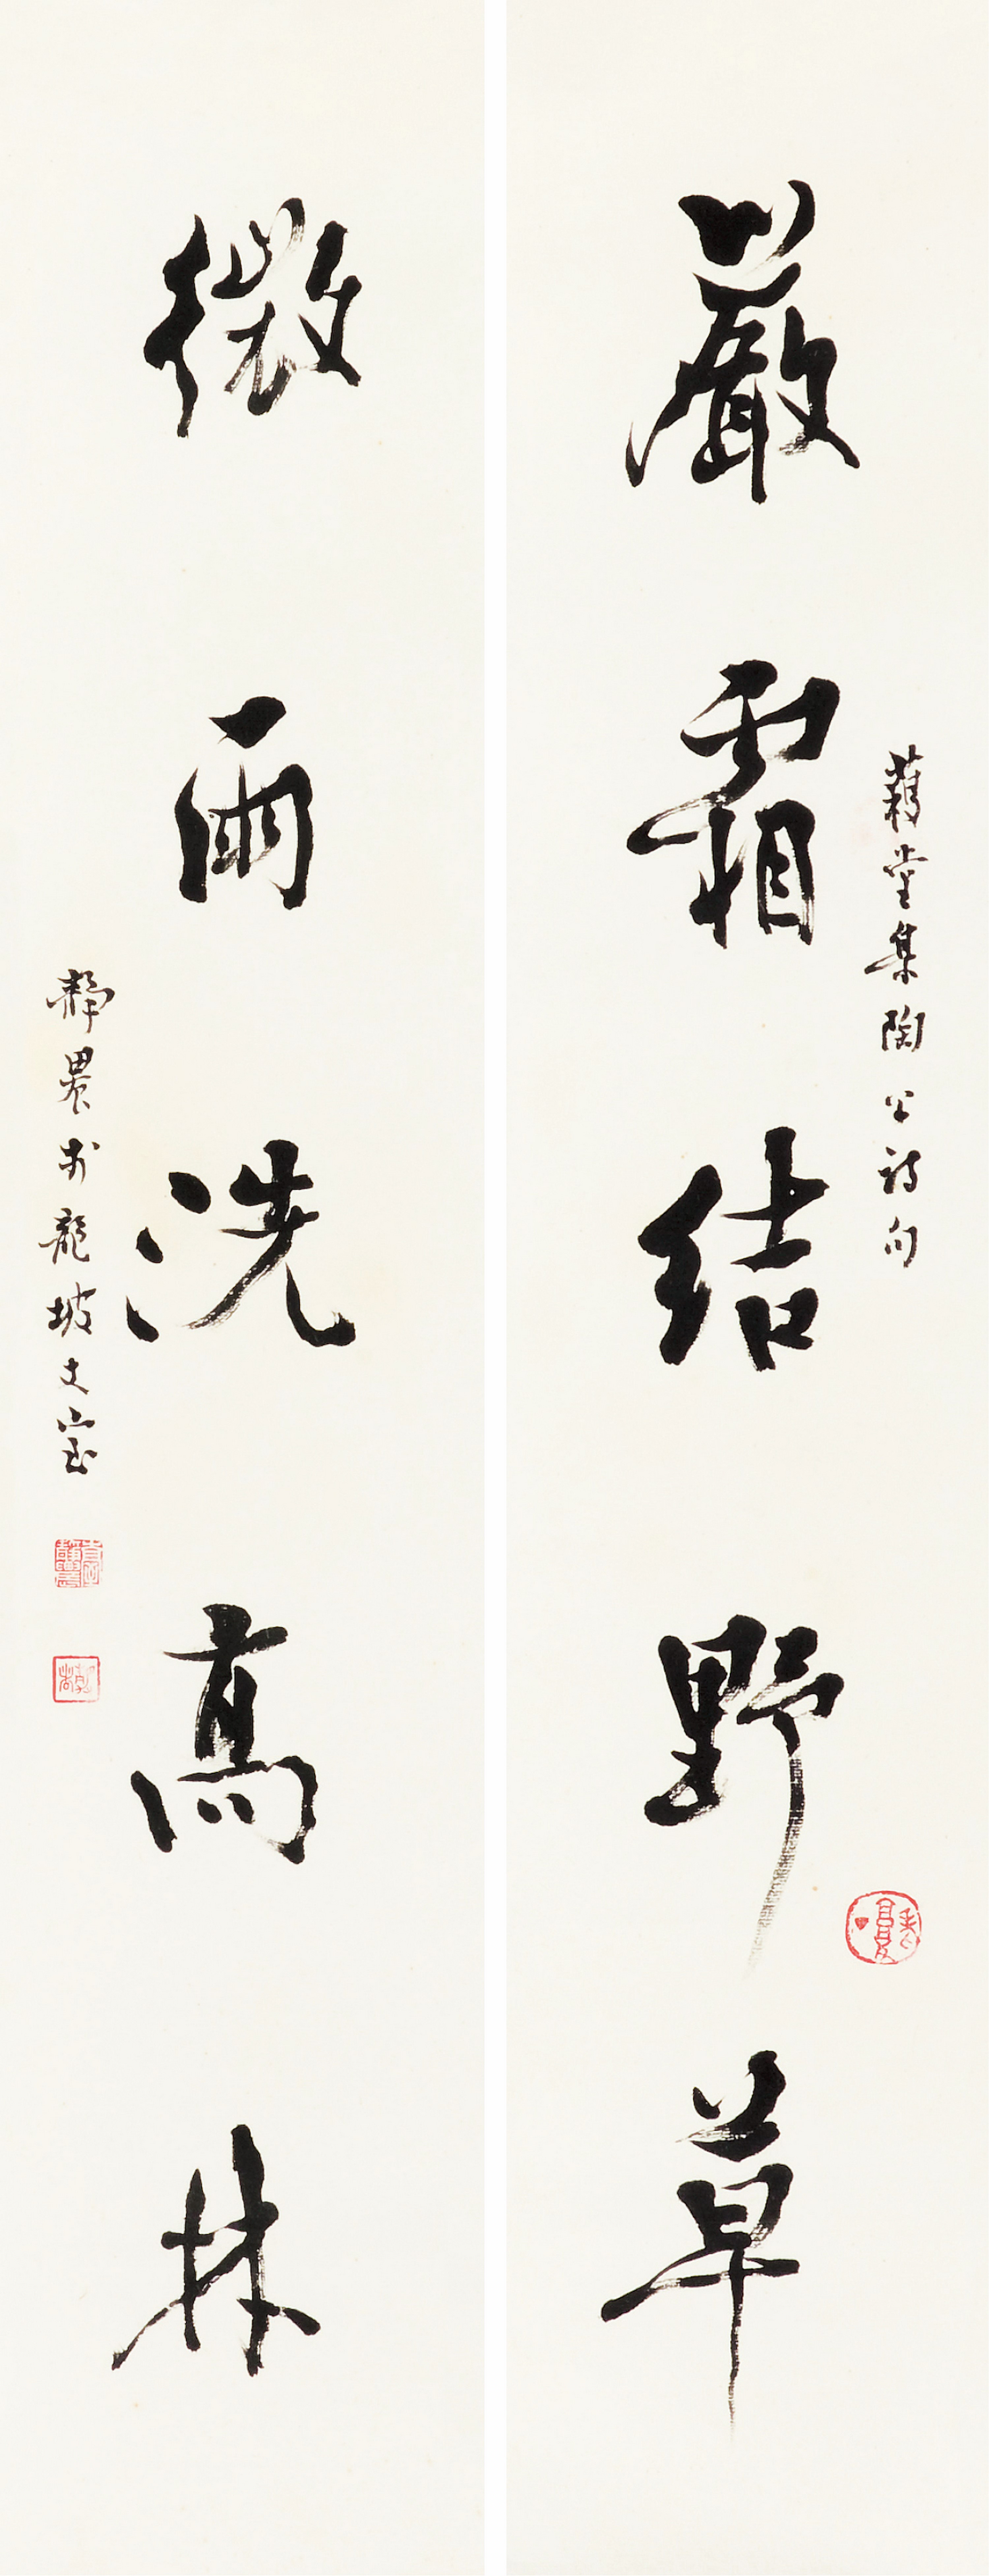 嚴霜結野草
薙堂集陶公詩句
微雨洗高林
靜農於龍坡丈室